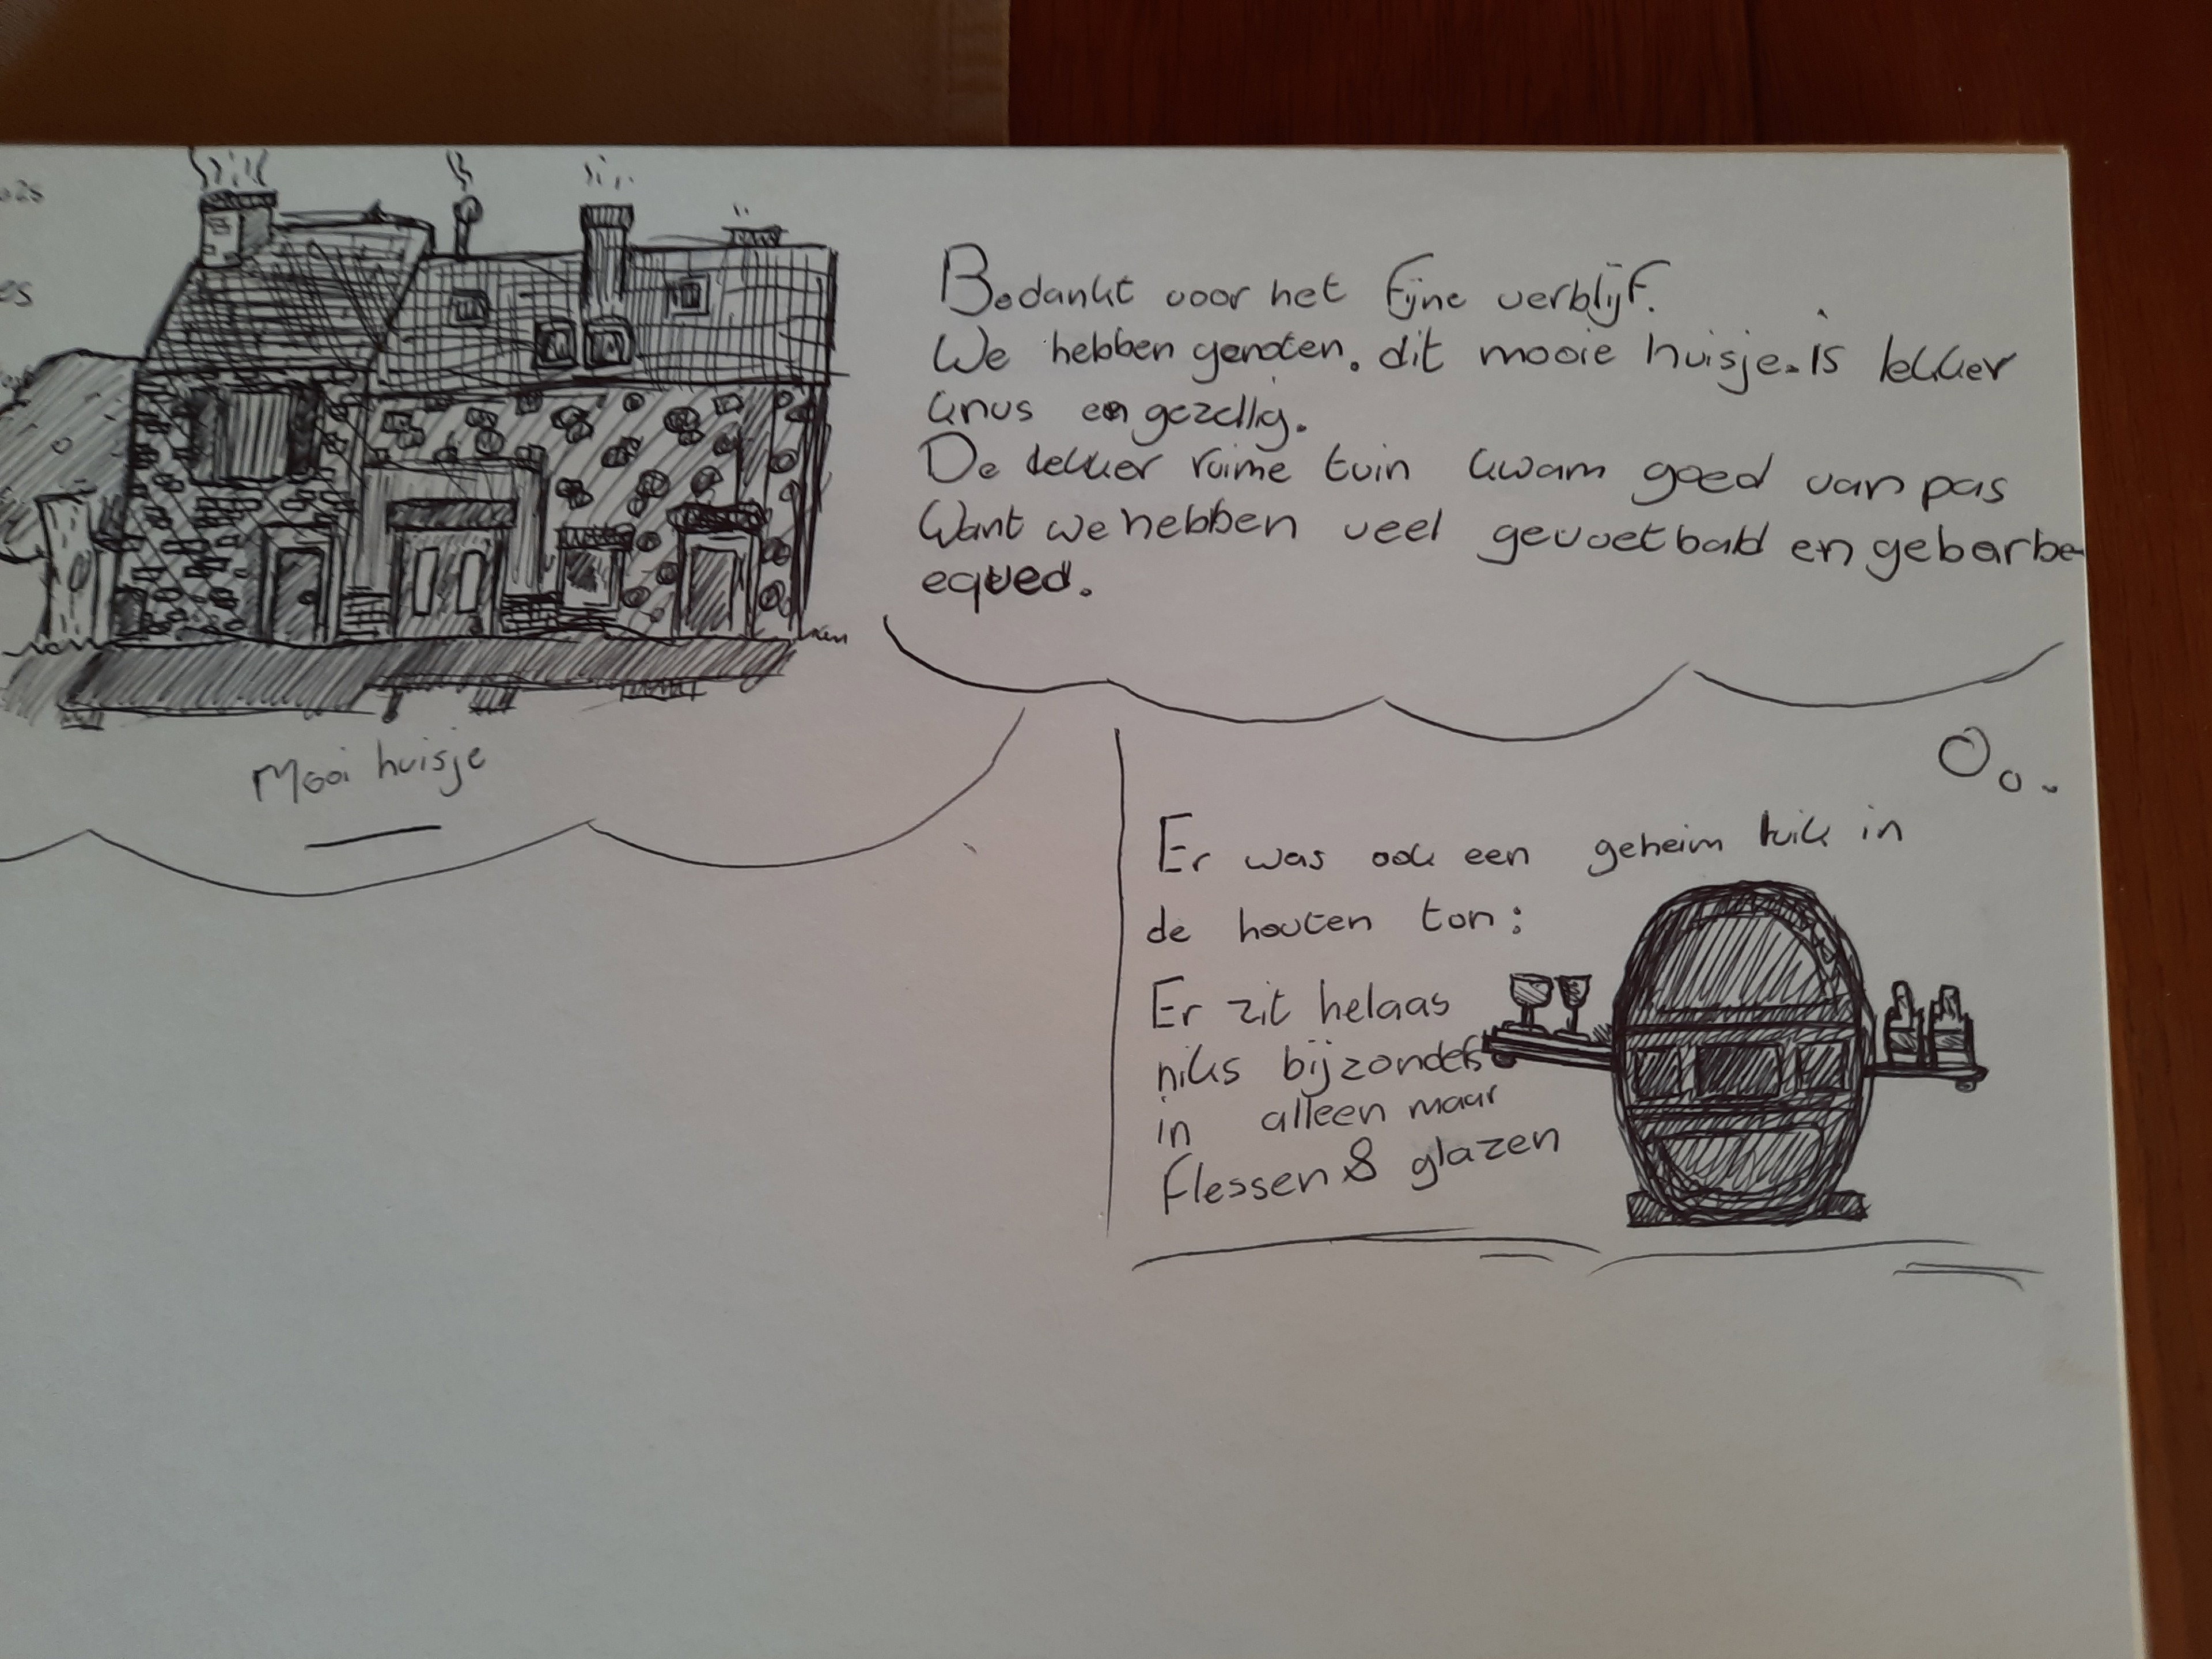 Bedankt voor het fijne verblijf.
We hebben genoten. dit mooie huisje. is lekker
knus en gezellig.
De lekker ruime tuin kwam goed van pas
Want we hebben veel gevoetbald en gebarbe-
equed.
Mooi huisje
Er was ook een geheim luik in
de houten ton:
Er zit helaas
niks bijzonders
in alleen maar
flessen & glazen